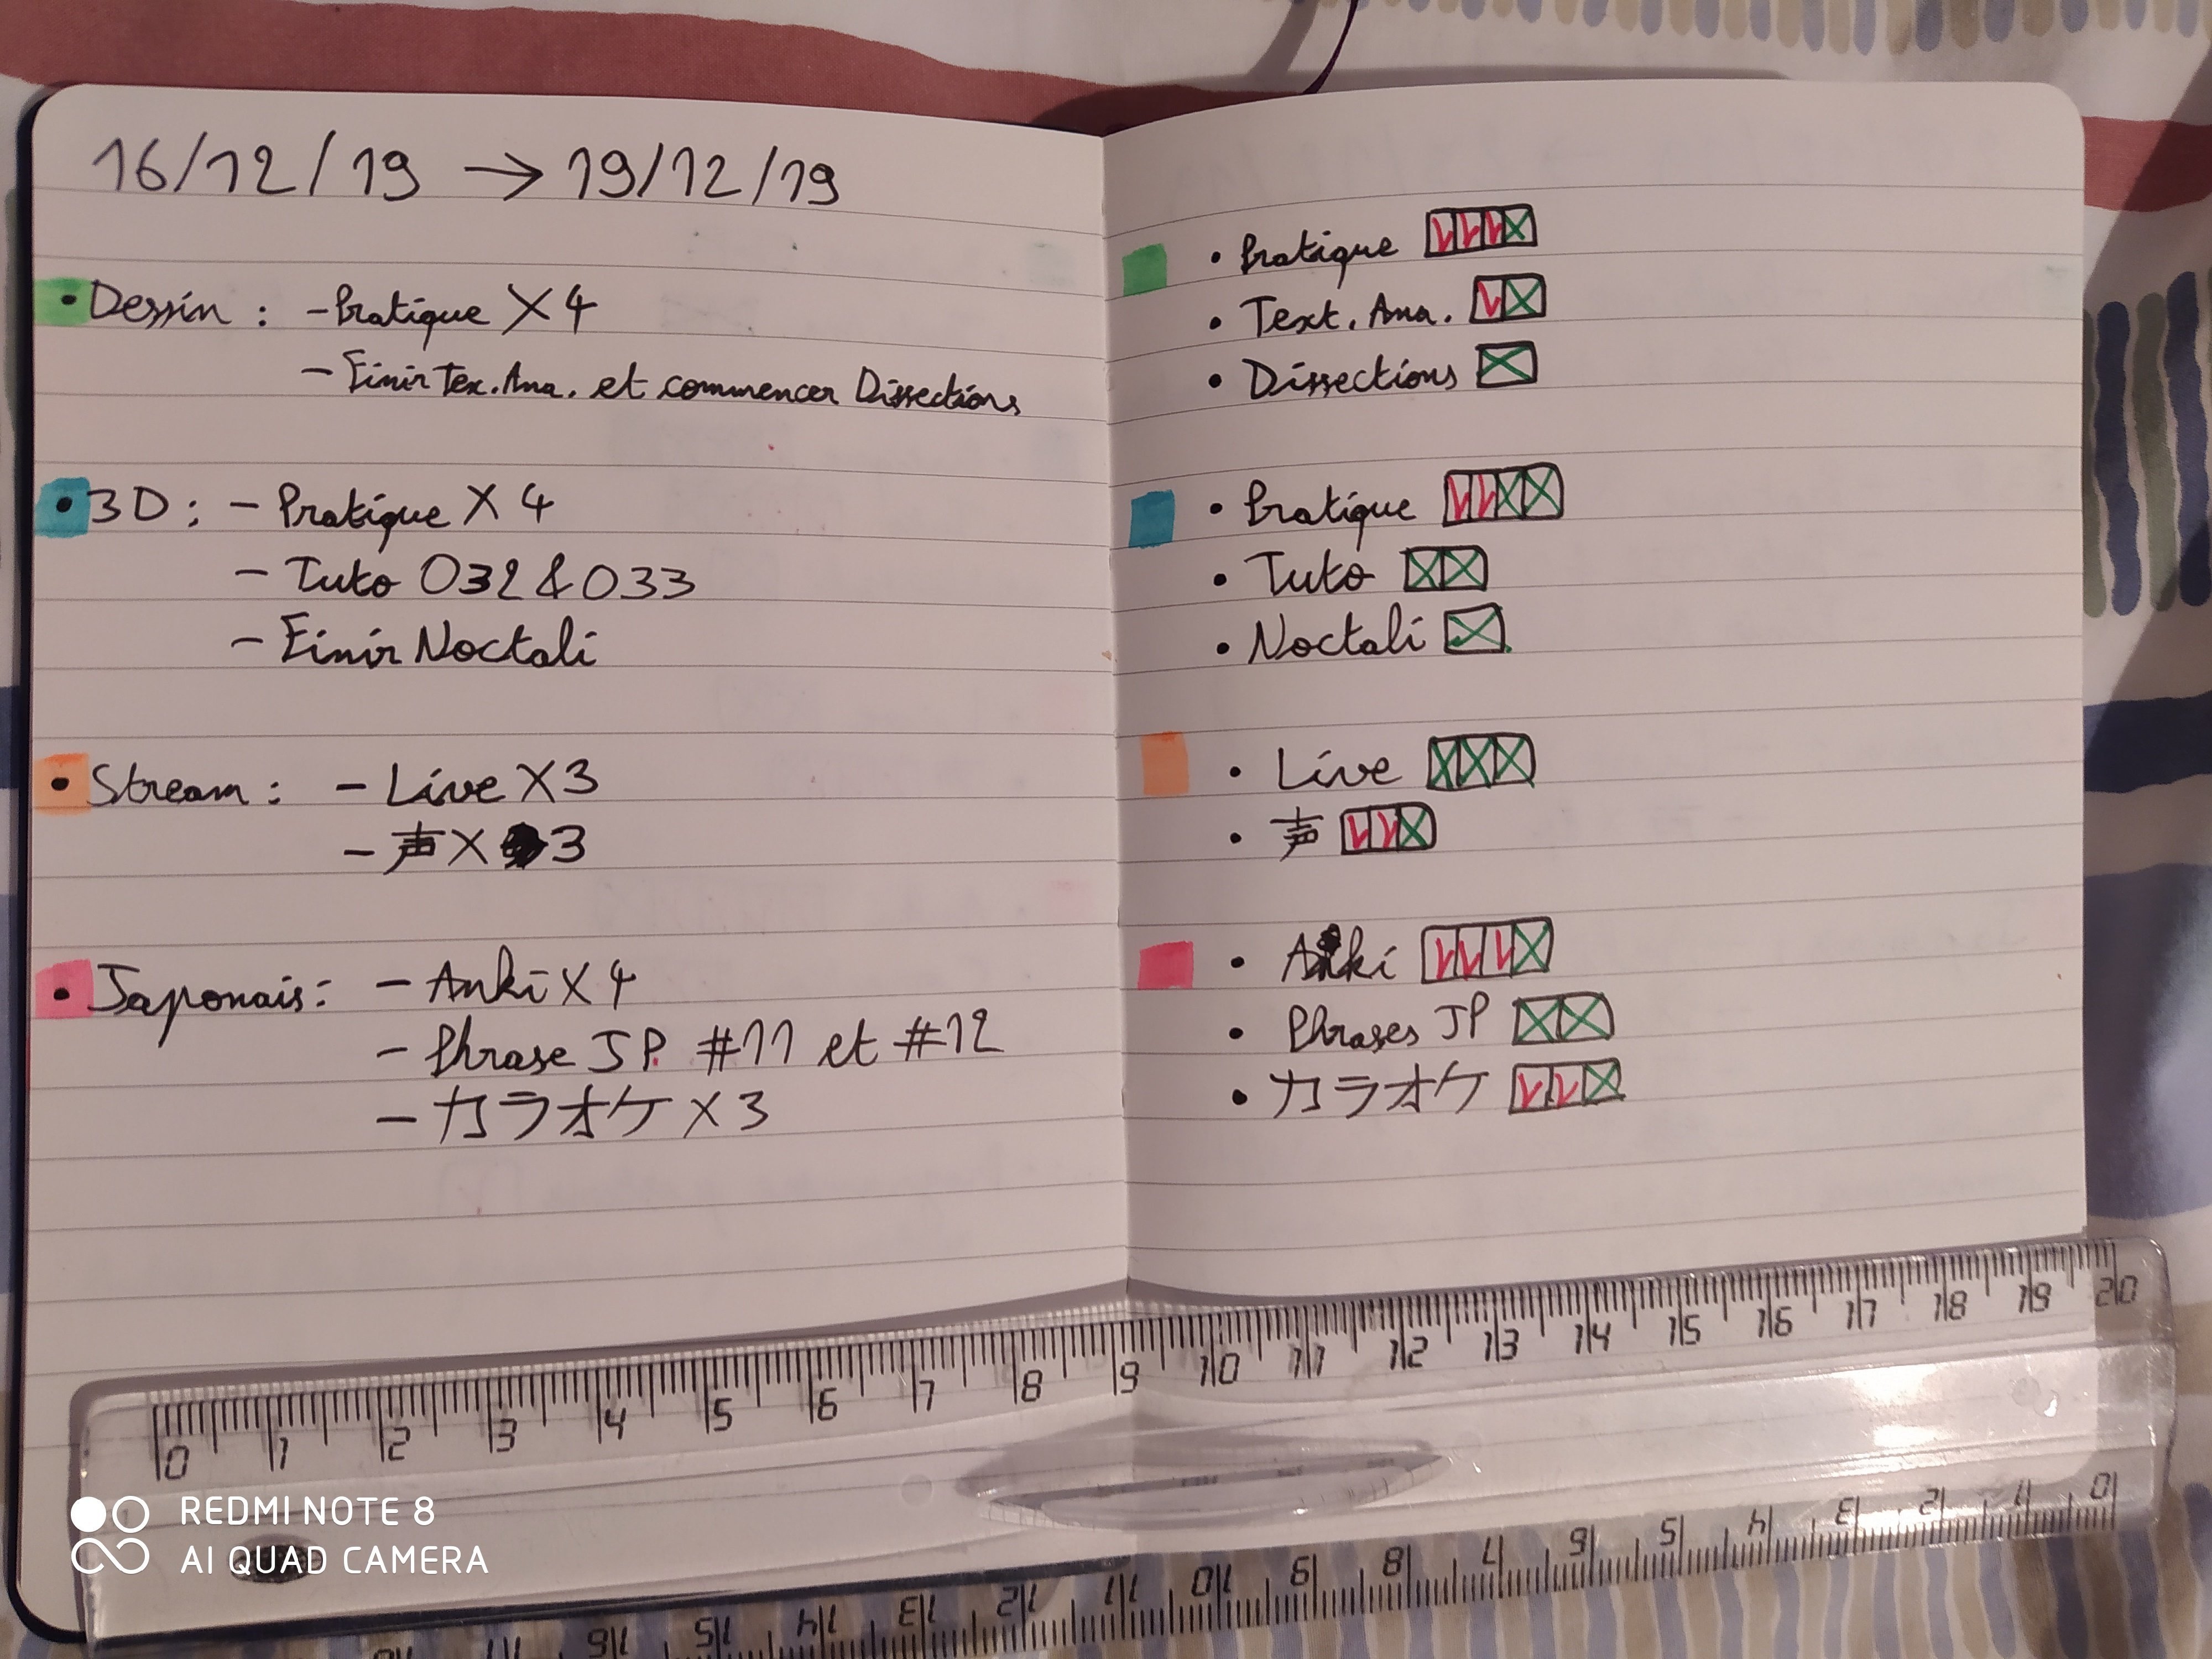 16/12/19 → 19/12/19
• Dessin : - Pratique X 4
- Finir Tex. Ana. et commencer Dissections
• 3D : - Pratique X 4
- Tuto 032 & 033
- Finir Noctali
• Stream : - Live X 3
- 声 X 3
• Japonais : - Anki X 4
- Phrase JP. #11 et #12
- カラオケ X 3
• Pratique
• Text. Ana.
• Dissections
• Pratique
• Tuto
• Noctali
• Live
• 声
• Anki
• Phrases JP
• カラオケ
0 1 2 3 4 5 6 7 8 9 10 11 12 13 14 15 16 17 18 19 20
0 1 2 3 4 5 6 7 8 9 10 11 12 13 14 15 16
REDMI NOTE 8
AI QUAD CAMERA